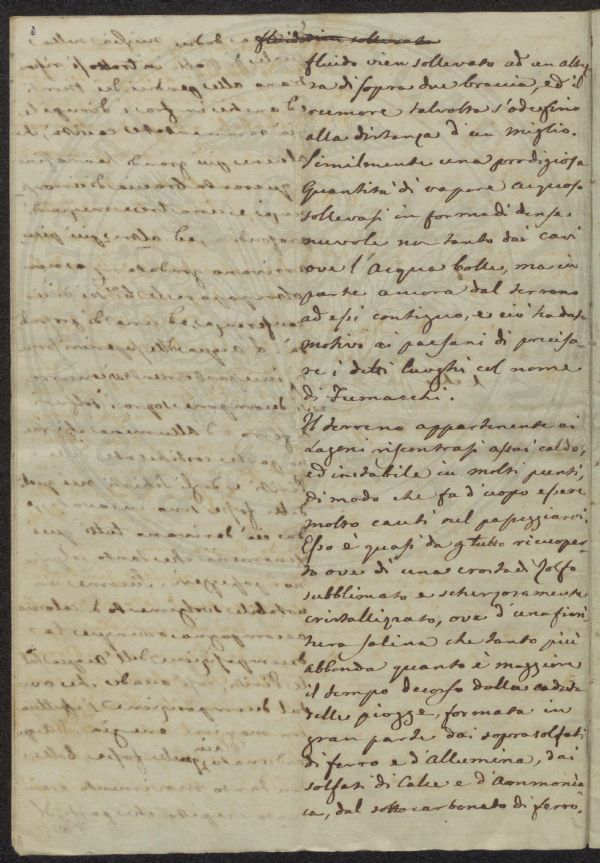 fluido vien sollevato ad un altez
za di sopra due braccia, ed il
rumore talvolta s'ode fino
alla distanza d'un miglio.
Similmente una prodigiosa
Quantità di vapore acquoso
sollevasi in forma di dense
nuvole non tanto dai cavi
ove l'Acqua bolle, ma in
parte ancora dal terreno
ad essi contiguo, e ciò ha dato
motivo ai paesani di precisa-
re i detti luoghi col nome
di Fumacchi.
Il terreno appartenente ai
Lagoni riscontrasi assai caldo,
ed instabile in molti punti,
di modo che fa d'uopo essere
molto cauti nel passeggiarvi.
Esso è quasi da per tutto ricuoper-
to ove di una crosta di Zolfo
subblimato e scherzosamente
cristallizzato, ove d'una fiori
tura salina che tanto più
abbonda quanto è maggiore
il tempo decorso dalla caduta
delle piogge, formata in
gran parte dai soprasolfati
di ferro e d'Allumina, dai
solfati di Calce e d'Ammonia-
ca, dal sotto carbonato di ferro,